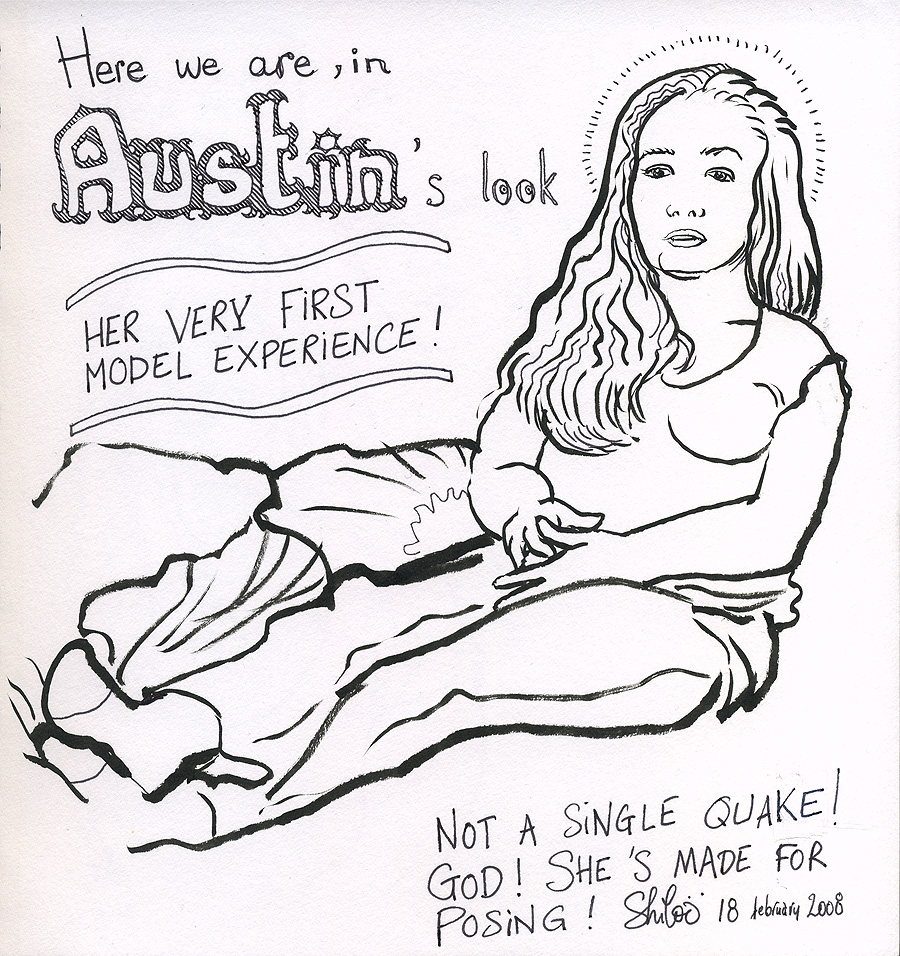 Here we are, in
Austin's look
HER VERY FiRST
MODEL EXPERiENCE!
NOT A SiNGLE QUAKE!
GOD! SHE'S MADE FOR
POSiNG! Shiloö 18 february 2008